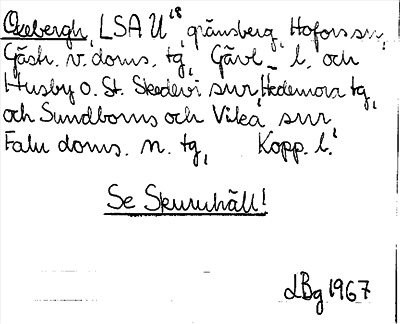 Oxebergh, LSA U¹⁸, gränsberg, Hofors sn,
Gästr. v. doms. tg, Gävl. l. och
Husby o. St. Skedevi snr, Hedemora tg,
och Sundborns och Vika snr,
Falu doms. n. tg, Kopp. l.
Se Skuruhäll!
LBg 1967